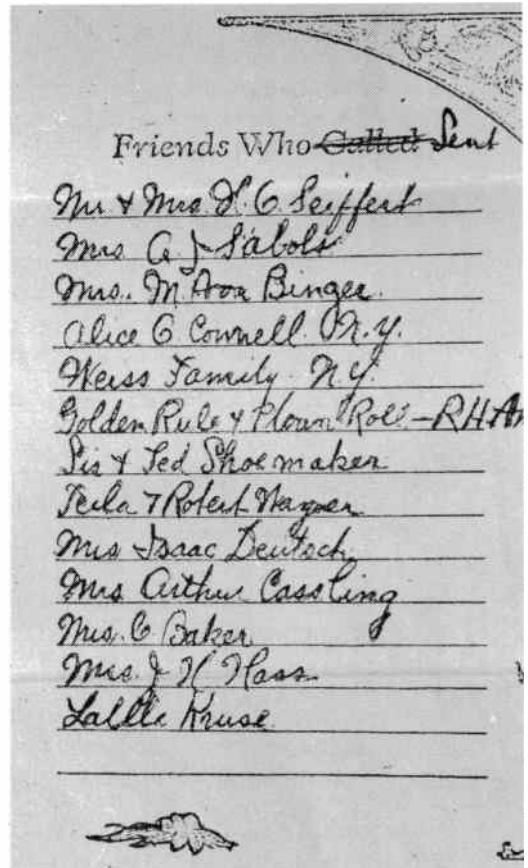 Friends Who Called Sent
Mr & Mrs. H. C. Seiffert
Mrs A. J. Sabols
Mrs. M. Avon Binger.
Alice C Connell. N.Y.
Weiss Family - N.Y.
Golden Rule & Roll - RH
Sis & Ted Shoemaker
& Robert Wagner
Mrs Isaac Deutsch
Mrs Arthur Cassling
Mrs. C. Baker
Mrs. J H Hass
Kruse